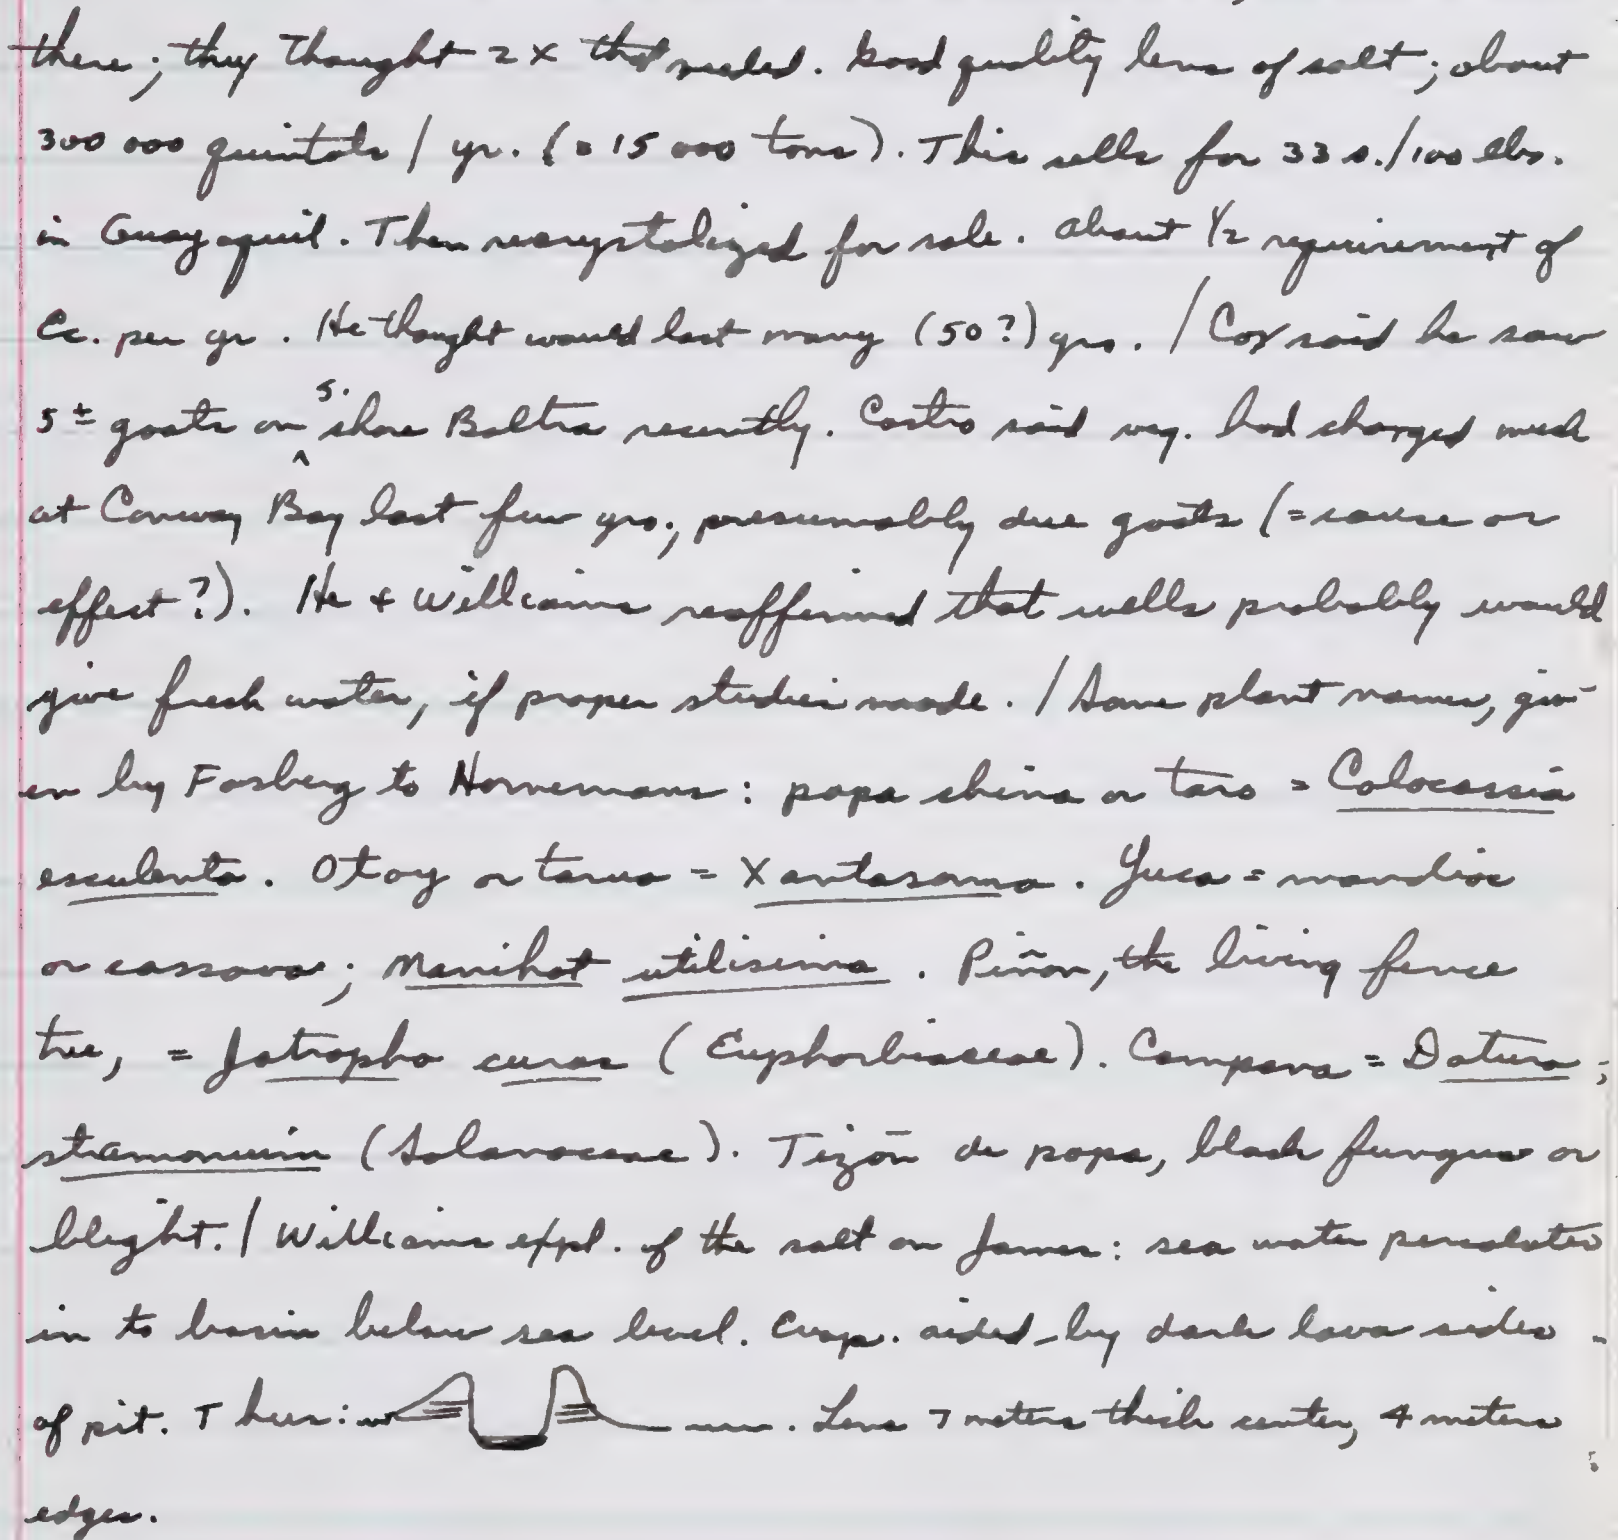 there; they thought 2 x that needed. Good quality lens of salt; about
300 000 quintals / yr. (= 15 000 tons). This sells for 33 s./100 lbs.
in Guayaquil. Then recrystalized for sale. About 1/2 requirement of
Ec. per yr. He thought would last many (50?) yrs. / Cox said he saw
5± goats on S. shore Baltra recently. Castro said veg. had changed much
at Conway Bay last few yrs., presumably due goats (= cause or
effect?). He + Williams reaffirmed that wells probably would
give fresh water, if proper studies made. / Some plant names, giv-
en by Fosberg to Hornemans: papa china or taro = Colocassia
esculenta. Otoy or tarua = Xantasoma. Yuca = mandioc
or cassava; Manihot utilisima. Piñon, the living fence
tree, = Jatropha curas (Euphorbiaceae). Campana = Datura
stramonium (Solanaceae). Tizōn de papa, black fungus or
blight. / Williams expl. of the salt on James: sea water percolates
in to basin below sea level. Evap. aided by dark lava sides
of pit. Thus: . Lens 7 meters thick center, 4 meters
edges.